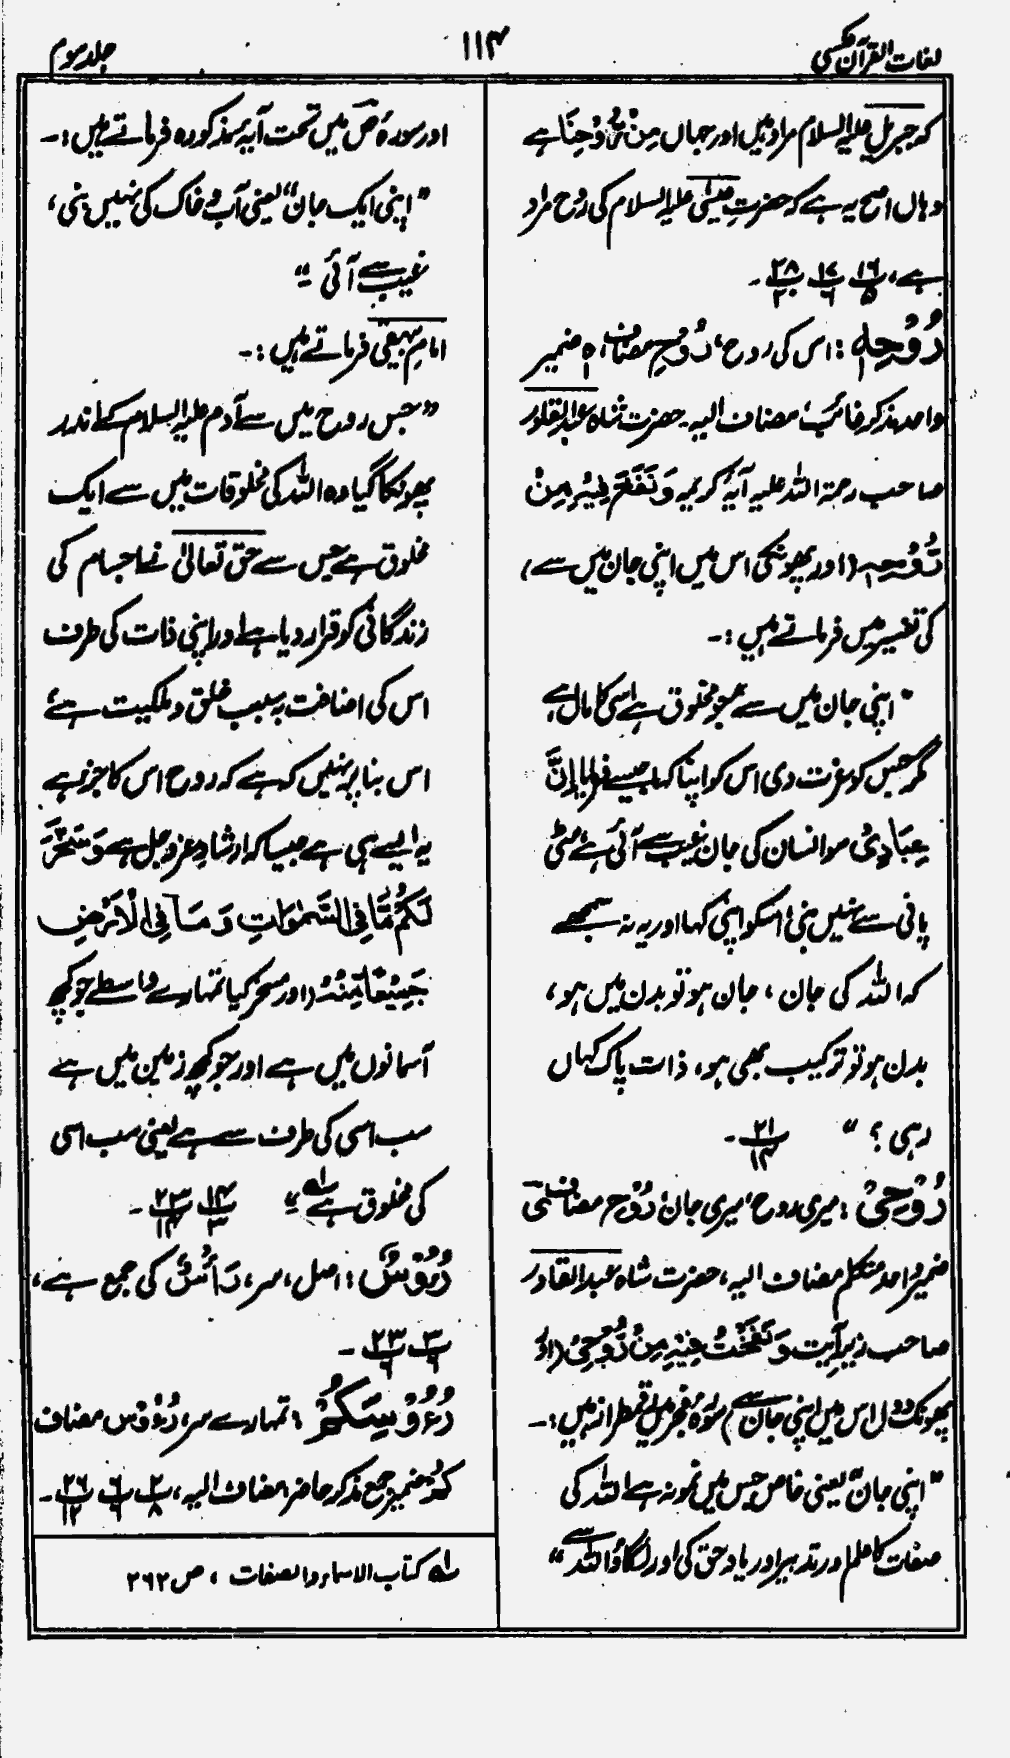 لغات القرآن عکسی
۱۱۴
جلد سوم
کہ جبریل علیہ السلام مراد ہیں اور جہاں مِنْ رُّوْحِنَا ہے
وہاں اصح یہ ہے کہ حضرتِ عیسٰی علیہ السلام کی رُوح مراد
ہے، ۱۶/۵ ۱۷/۶ ۲۸/۲۰۔
رُوْحِهٖ: اس کی روح، رُوْحِ مضاف، ہٖ ضمیر
واحد مذکر غائب، مضاف الیہ۔ حضرت شاہ عبدالقادر
صاحب رحمۃ اللہ علیہ آیۂ کریمہ وَنَفَخَ فِیْهِ مِنْ
رُّوْحِهٖ (اور پھونکی اس میں اپنی جان میں سے)
کی تفسیر میں فرماتے ہیں:۔
"اپنی جان میں سے جو مخلوق ہے اسی کا مال ہے
مگر جس کو عزت دی اس کو اپنا کہا جیسے فرمایا اِنَّ
عِبَادِیْ سو انسان کی جان غیب سے آئی ہے مٹی
پانی سے نہیں بنی اسکو اپنی کہا اور یہ نہ سمجھے
کہ اللہ کی جان، جان ہو تو بدن میں ہو،
بدن ہو تو ترکیب بھی ہو، ذات پاک کہاں
رہی؟" ۲۱/۱۴۔
رُوْحِیْ: میری روح، میری جان رُوْح مضاف ی
ضمیر واحد متکلم مضاف الیہ، حضرت شاہ عبدالقادر
صاحب زیرِ آیت وَنَفَخْتُ فِیْهِ مِنْ رُّوْحِیْ (اور
پھونک دوں اس میں اپنی جان سے) سورۂ حجر میں رقمطراز ہیں:۔
"اپنی جان" یعنی خاص جس میں نمونہ ہے اللہ کی
صفات کا علم اور تدبیر اور یاد حق کی اور لگاؤ اللہ سے"
اور سورۂ صٓ میں تحت آیۂ مذکورہ فرماتے ہیں:۔
"اپنی ایک جان" یعنی آب و خاک کی نہیں بنی،
غیب سے آئی ہے"
امام بیہقی فرماتے ہیں:۔
"جس روح میں سے آدم علیہ السلام کے اندر
پھونکا گیا وہ اللہ کی مخلوقات میں سے ایک
مخلوق ہے جس سے حق تعالیٰ نے اجسام کی
زندگانی کو قرار دیا ہے اور اپنی ذات کی طرف
اس کی اضافت بہ سبب خلق و ملکیت ہے
اس بنا پر نہیں کہ ہے کہ روح اس کا جز ہے
یہ ایسے ہی ہے جیسا کہ ارشادِ عز و جل ہے وَسَخَّرَ
لَکُمْ مَّا فِی السَّمٰوٰتِ وَمَا فِی الْاَرْضِ
جَمِیْعًا مِّنْهُ (اور مسخر کیا تمہارے واسطے جو کچھ
آسمانوں میں ہے اور جو کچھ زمین میں ہے
سب اسی کی طرف سے ہے یعنی سب اسی
کی مخلوق ہے" لہ ۱۴/۳ ۲۳/۱۴۔
رُءُوْسٌ: اصل، سر، رَأْسٌ کی جمع ہے،
۳/۶ ۲۳/۶۔
رُءُوْسِکُمْ: تمہارے سر، رُءُوْس مضاف
کُمْ ضمیر جمع مذکر حاضر مضاف الیہ، ۲/۸ ۶/۶ ۲۶/۱۲۔
لہ کتاب الاسماء والصفات، ص ۲۶۲